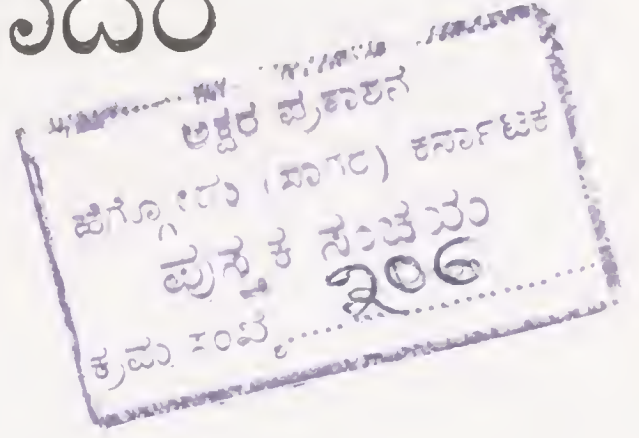 ಅಕ್ಷರ ಪ್ರಕಾಶನ
ಹೆಗ್ಗೋಡು (ಸಾಗರ) ಕರ್ನಾಟಕ
ಪುಸ್ತಕ ಸಂಚಯ
ಕ್ರಮ ಸಂಖ್ಯೆ.......೨೦೬.......